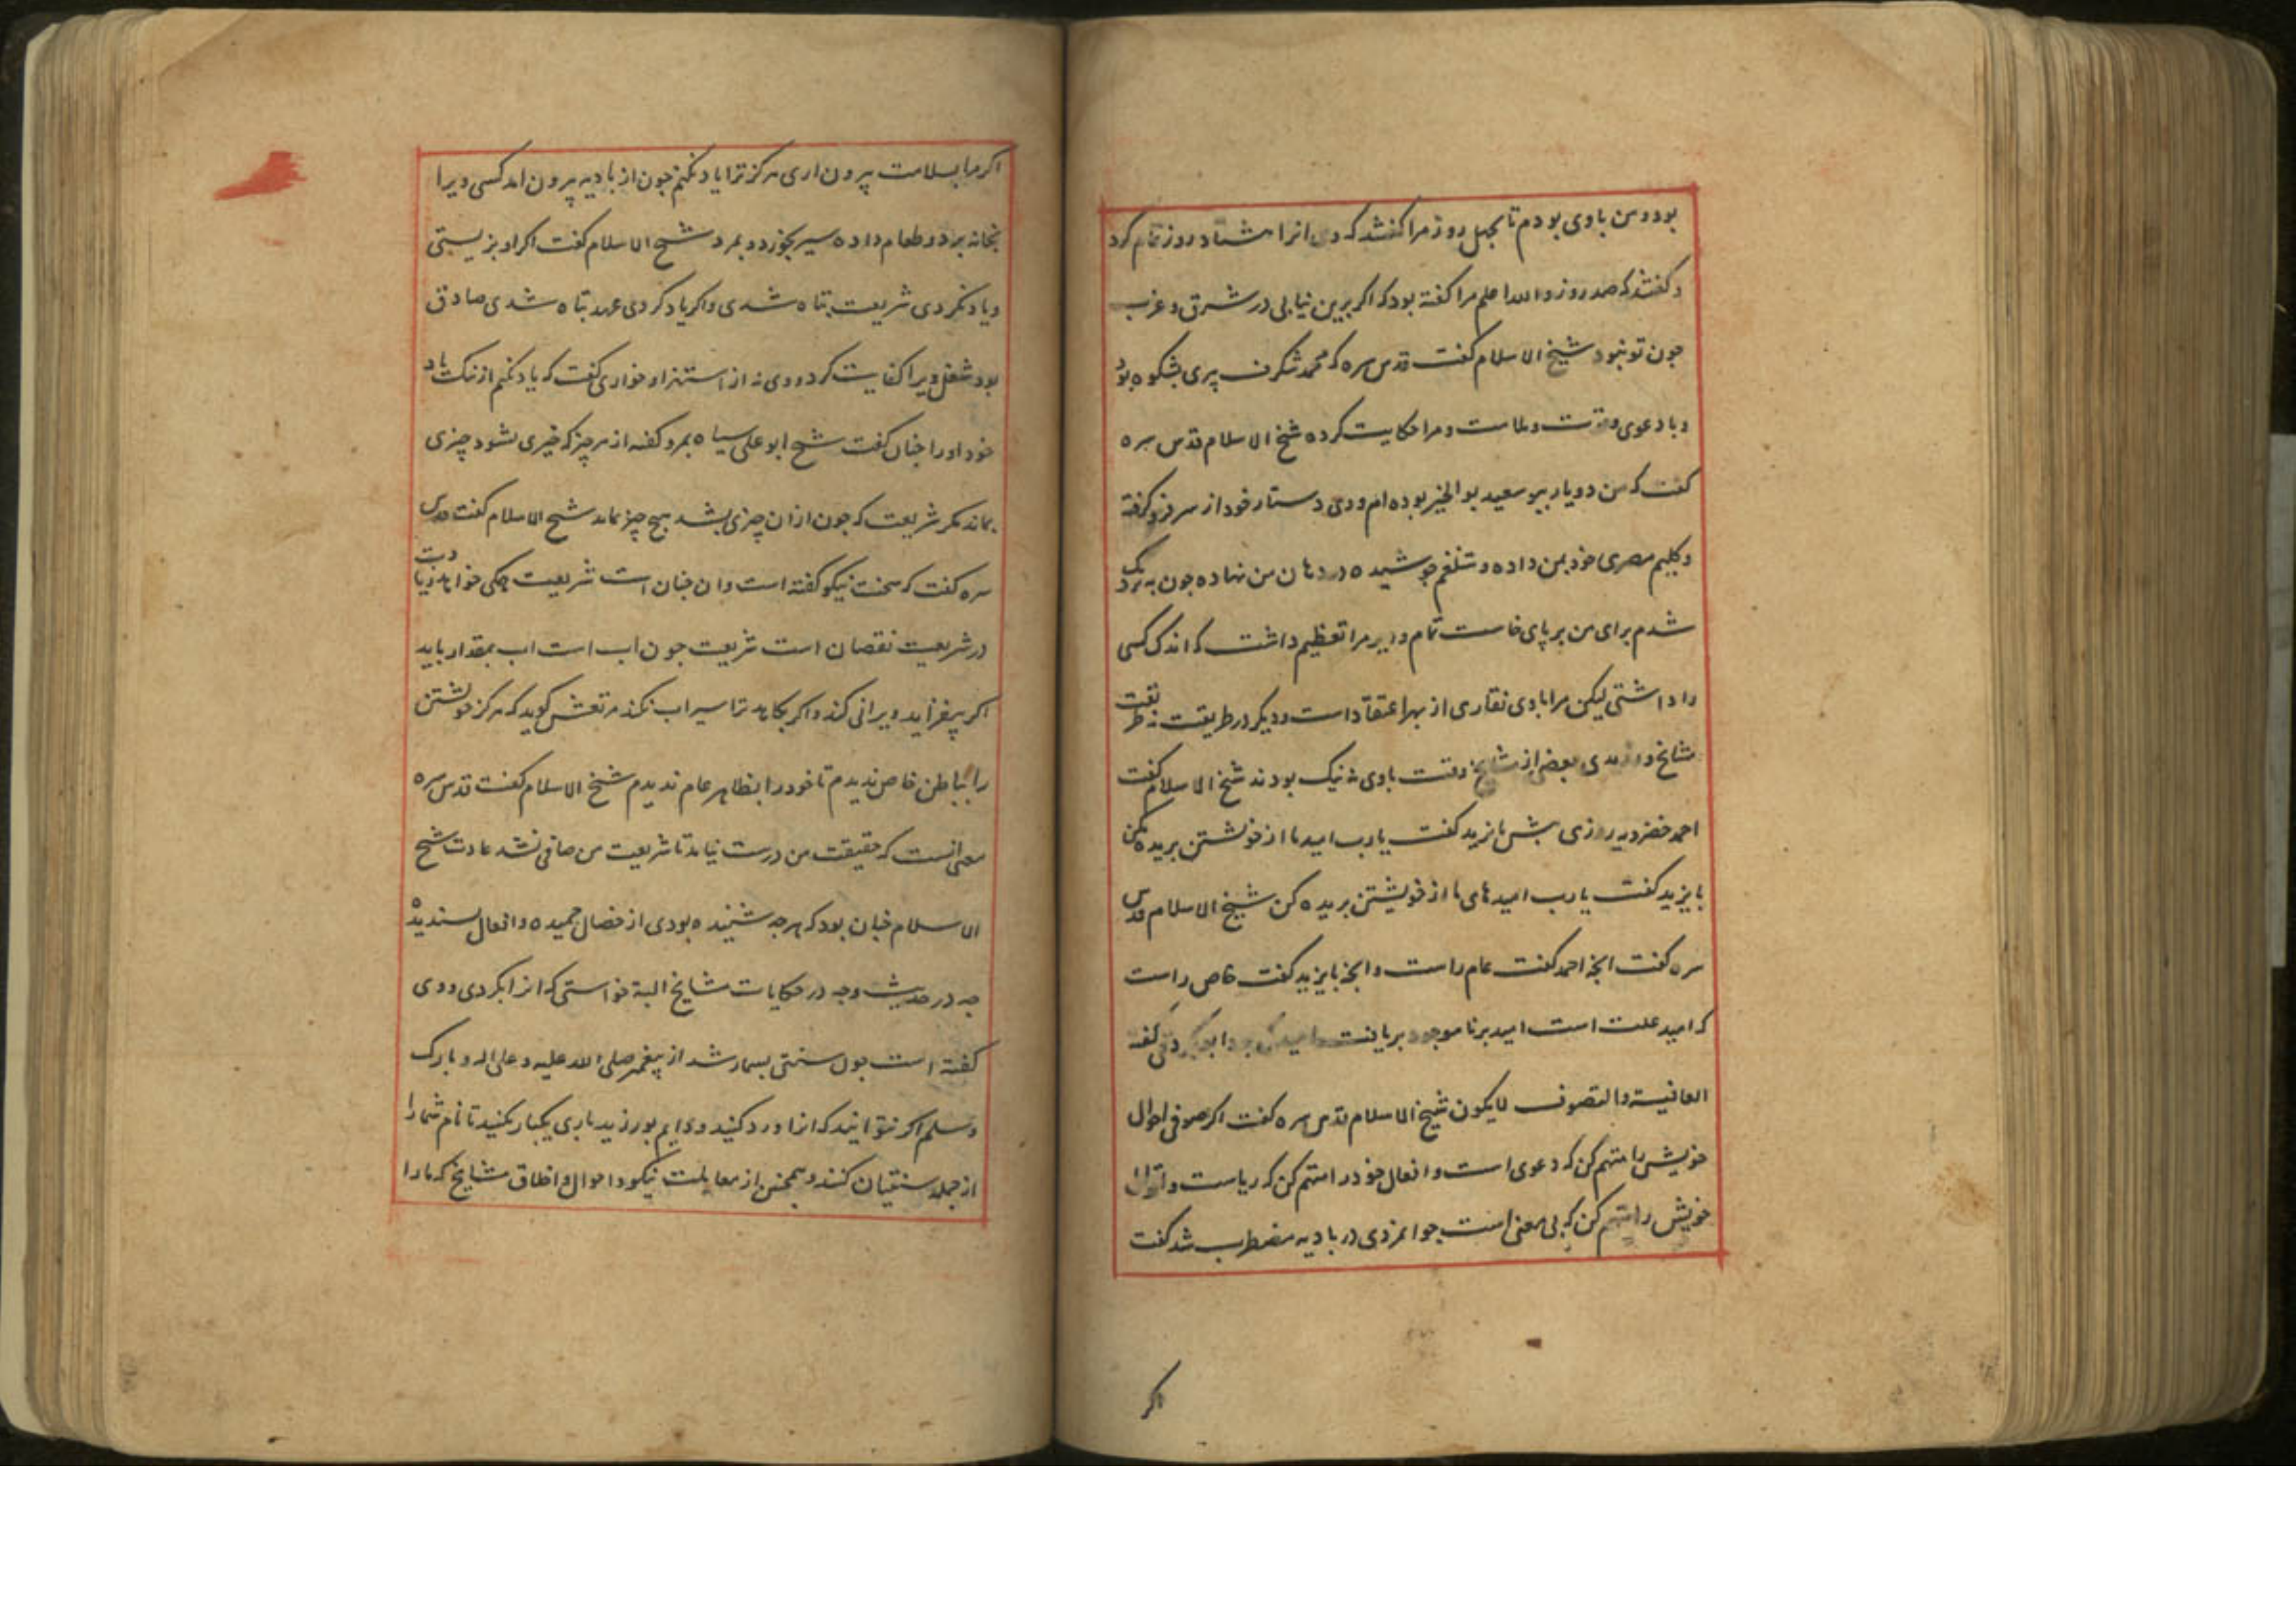 بود و من باوی بودم تا بجهل روز مرا کفتند که وی انرا هشتاد روز تمام کرد
و کفتند که صد روز والله اعلم مرا کفته بود که اکر برین نیابی در شرق و غرب
جون تو نبود شیخ الاسلام کفت قدس سره که محمد شکرف پیری بشکوه بود
و با دعوی و قوت و ملامت و مرا حکایت کرده شیخ الاسلام قدس سره
کفت که من دو بار ببوسعید بوالخیر بوده ام و وی دستار خود از سر فرو کرفته
و کلیم مصری خود بمن داده و شلغم جوشیده در دهان من نهاده جون به نزدیک
شدم برای من بر پای خاست تمام و مرا تعظیم داشت که اندک کسی
را داشتی لیکن مرا باوی نقاری از بهر اعتقاد است و دیکر در طریقت نه طریقت
مشایخ ورزیدی بعضی از مشایخ وقت باوی نه نیک بودند شیخ الاسلام کفت
احمد خضرویه روزی بیش بایزید کفت یا رب امید ما از خویشتن بریده مکن
بایزید کفت یا رب امیدهای ما از خویشتن بریده کن شیخ الاسلام قدس
سره کفت انجه احمد کفت عام راست و انجه بایزید کفت خاص راست
که امید علت است امید بر نا موجود بر یافت دقی کفته
العافیة والتصوف لایکون شیخ الاسلام قدس سره کفت اکر صوفی احوال
خویش را متهم کن که دعوی است و افعال خود را متهم کن که ریاست و اقوال
خویش را متهم کن که بی معنی است جوانمردی در بادیه مضطرب شد کفت
اکر
اکر مرا بسلامت بیرون اری هرکز ترا یاد نکنم جون از بادیه بیرون امد کسی ویرا
بخانه برد و طعام داد سیر بخورد و بمرد شیخ الاسلام کفت اکر او بزیستی
و یاد نکردی شریعت تباه شدی و اکر یاد کردی عهد تباه شدی صادق
بود شغل ویرا کفایت کرد و وی نه از استهزا و خواری کفت که یاد نکنم از ننک یاد
خود او را جنان کفت شیخ ابو علی سیاه بمرو کفته از هر چیز که خیری بشود چیزی
بماند مکر شریعت که جون از ان چیزی بشد هیچ چیز نماند شیخ الاسلام کفت قدس
سره کفت که سخت نیکو کفته است و ان جنان است شریعت همکی خواهد زیادت
در شریعت نقصان است شریعت جون اب است اب بمقدار باید
اکر بیفزاید ویرانی کند و اکر بکاهد ترا سیراب نکند مرتعش کوید که هرکز خویشتن
را بباطن خاص ندیدم تا خود را بظاهر عام ندیدم شیخ الاسلام کفت قدس سره
معنی انست که حقیقت من درست نیامد تا شریعت من صافی نشد عادت شیخ
الاسلام جنان بود که هرجه شنیده بودی از خصال حمیده و افعال بسندیده
جه در حدیث و جه در حکایات مشایخ البته خواستی که انرا بکردی و وی
کفته است جون سنتی بسمار شد از بیغمبر صلی الله علیه و علی اله و بارک
و سلم اکر نتوانید که انرا ورد کنید و دایم بورزید باری یکبار بکنید تا نام شما را
از جمله سنتیان کنند و همجنین از معاملت نیکو و احوال و اخلاق مشایخ که ما را